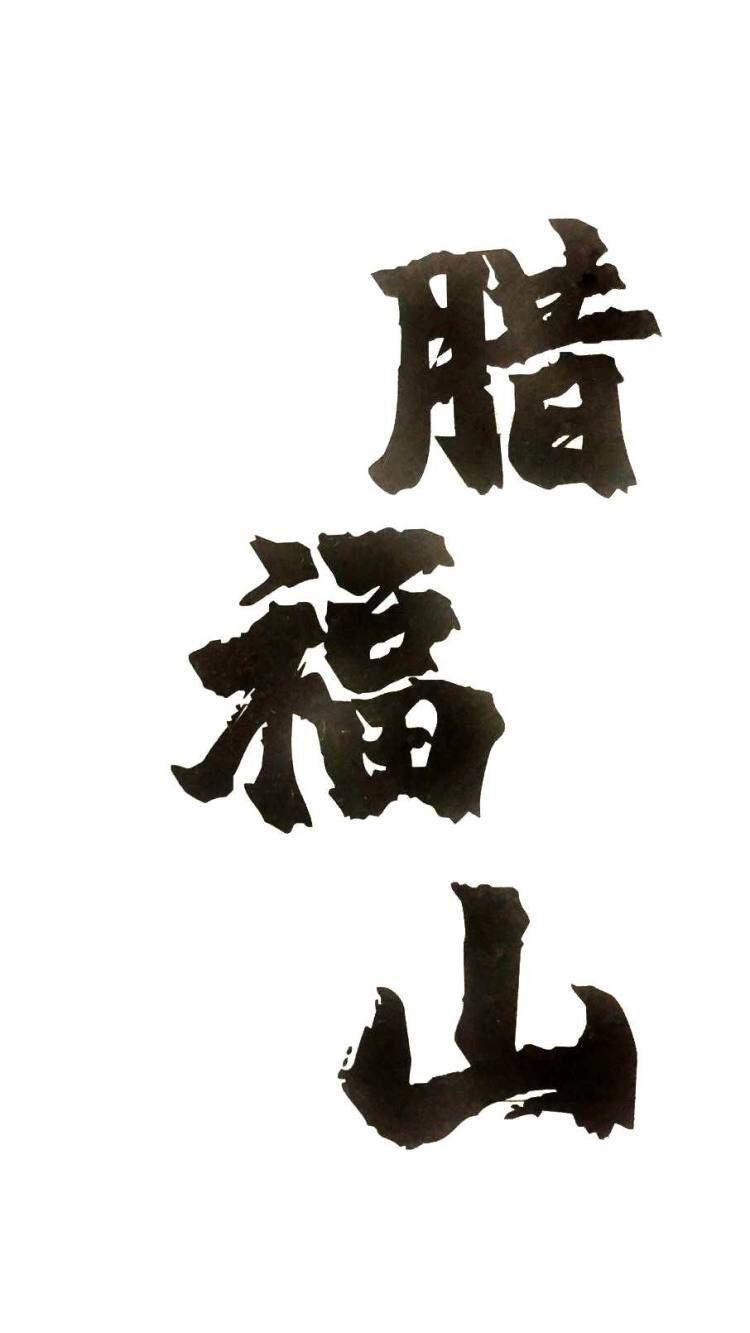 腊福山